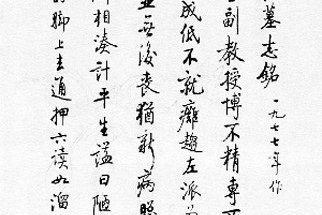 墓志銘 一九七七年作
副教授博不精專不
成低不就癱趨左派
並無後喪猶新病照
相湊計平生謚曰陋
脚上去通押六读如溜